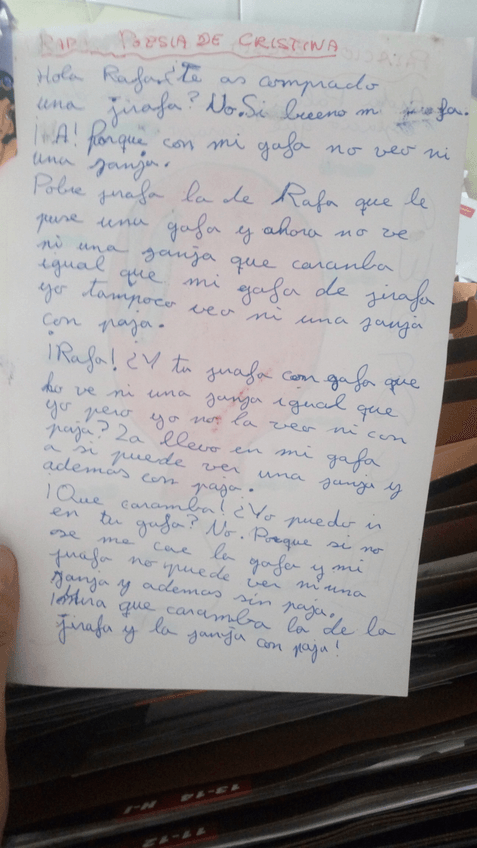 RAP. POESIA DE CRISTINA
Hola Rafa ¿Te as comprado
una jirafa? No. Si bueno mi jirafa.
¡A! Porque con mi gafa no veo ni
una zanja.
Pobre jirafa la de Rafa que le
puse una gafa y ahora no ve
ni una zanja que caramba
igual que mi gafa de jirafa
yo tampoco veo ni una zanja
con paja.
¡Rafa! ¿Y tu jirafa con gafa que
no ve ni una zanja igual que
yo pero yo no la veo ni con
paja? La llevo en mi gafa
a si puede ver una zanja y
ademas con paja.
¡Que caramba! ¿Yo puedo ir
en tu gafa? No. Porque si no
se me cae la gafa y mi
jirafa no puede ver ni una
zanja y ademas sin paja.
¡Mira que caramba la de la
jirafa y la zanja con paja!
13-14
N-I
11-12